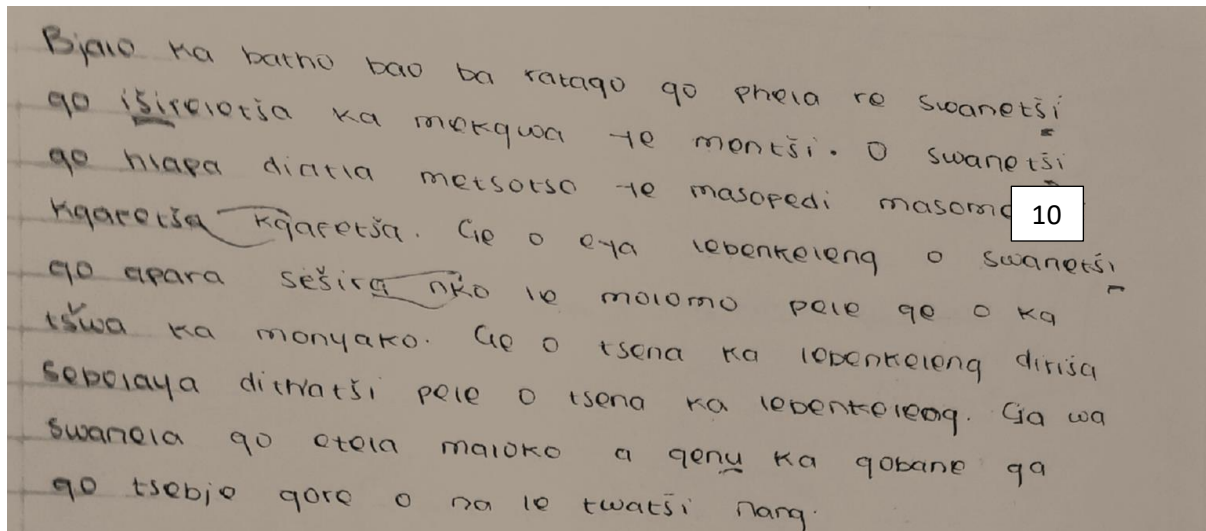 Bjalo ka batho bao ba ratago go phela re swanetši
go išireletša ka mekgwa ye mentši. O swanetši
go hlapa diatla metsotso ye masopedi
10
kgaretša kgaretša. Ge o eya lebenkeleng o swanetši
go apara sešira nko le molomo pele ge o ka
tšwa ka monyako. Ge o tsena ka lebenkeleng diriša
sebolaya dithatši pele o tsena ka lebenkeleng. Ga wa
swanela go etela maloko a genu ka gobane ga
go tsebje gore o na le twatši nang.